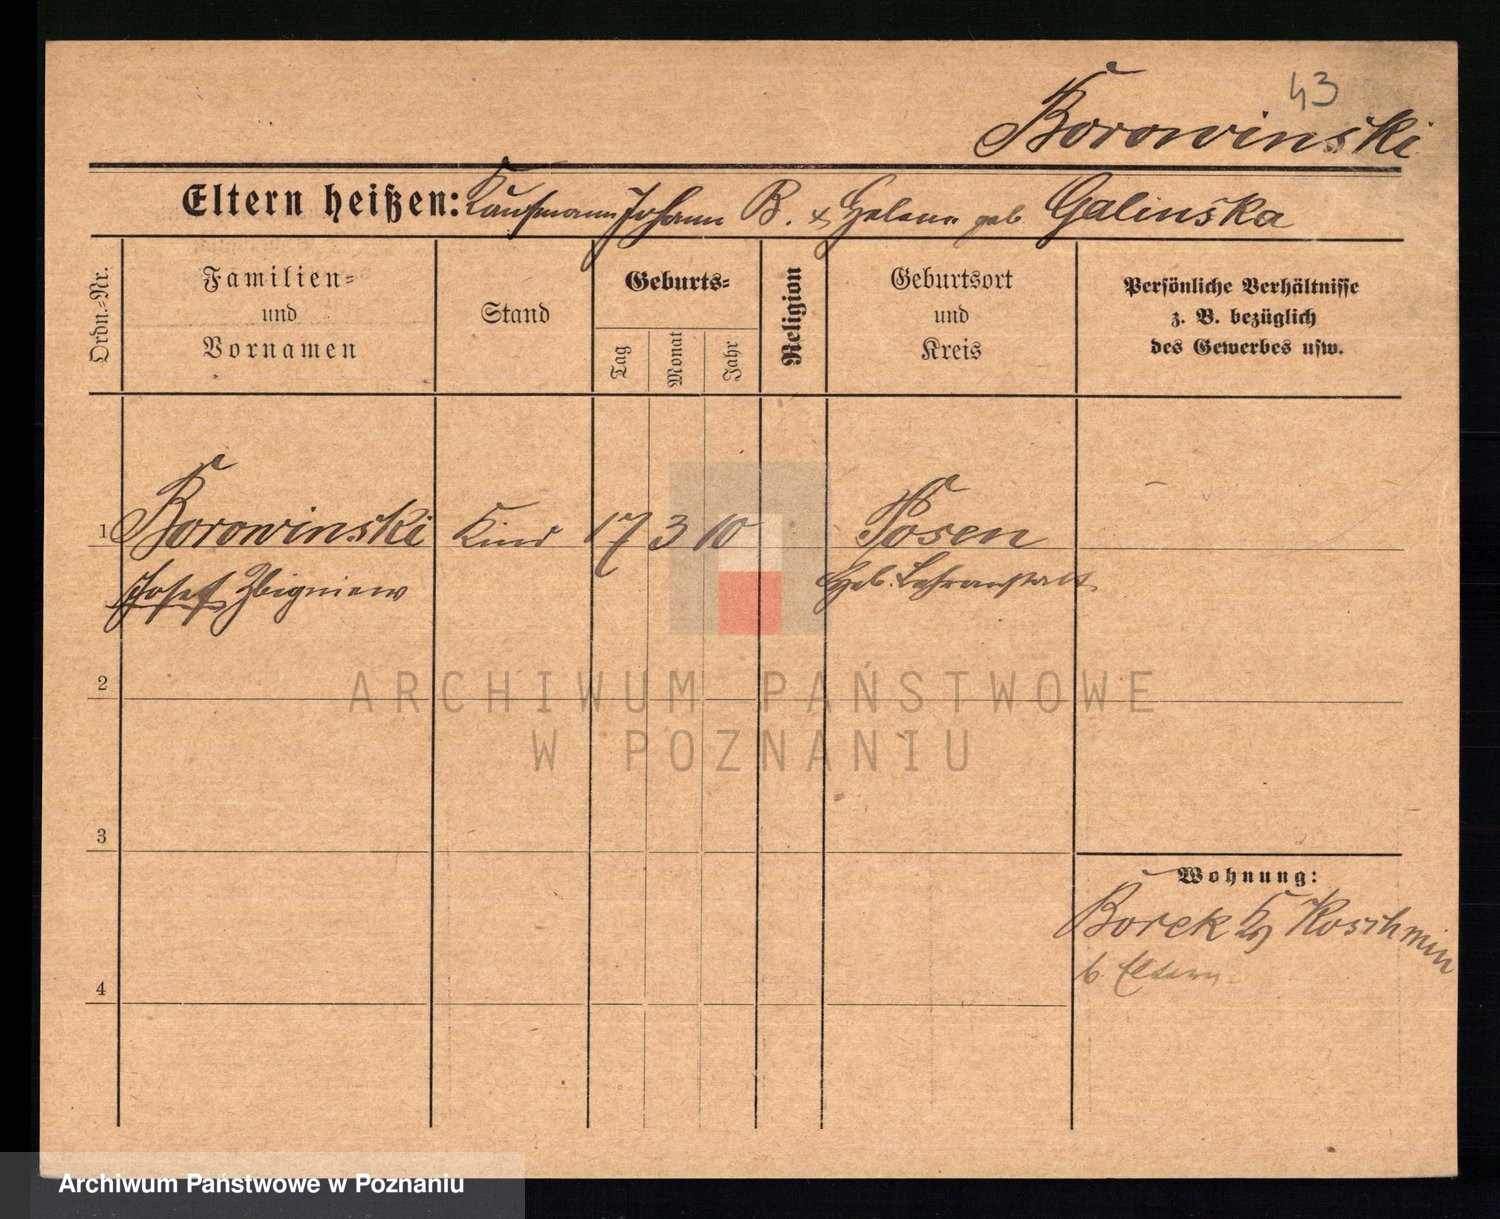 43
Borowinski
Eltern heißen: Kaufmann Johann B. & Helene geb. Galinska
Ordn.-Nr.
Familien-
und
Vornamen
Stand
Geburts-
Tag
Monat
Jahr
Religion
Geburtsort
und
Kreis
Persönliche Verhältnisse
z. B. bezüglich
des Gewerbes usw.
1 Borowinski Kind 17 3 10 Posen
Josef Zbigniew Heb. Lehranstalt
2
ARCHIWUM PAŃSTWOWE
W POZNANIU
3
Wohnung:
Borek Koschmin
b. Eltern
4
Archiwum Państwowe w Poznaniu